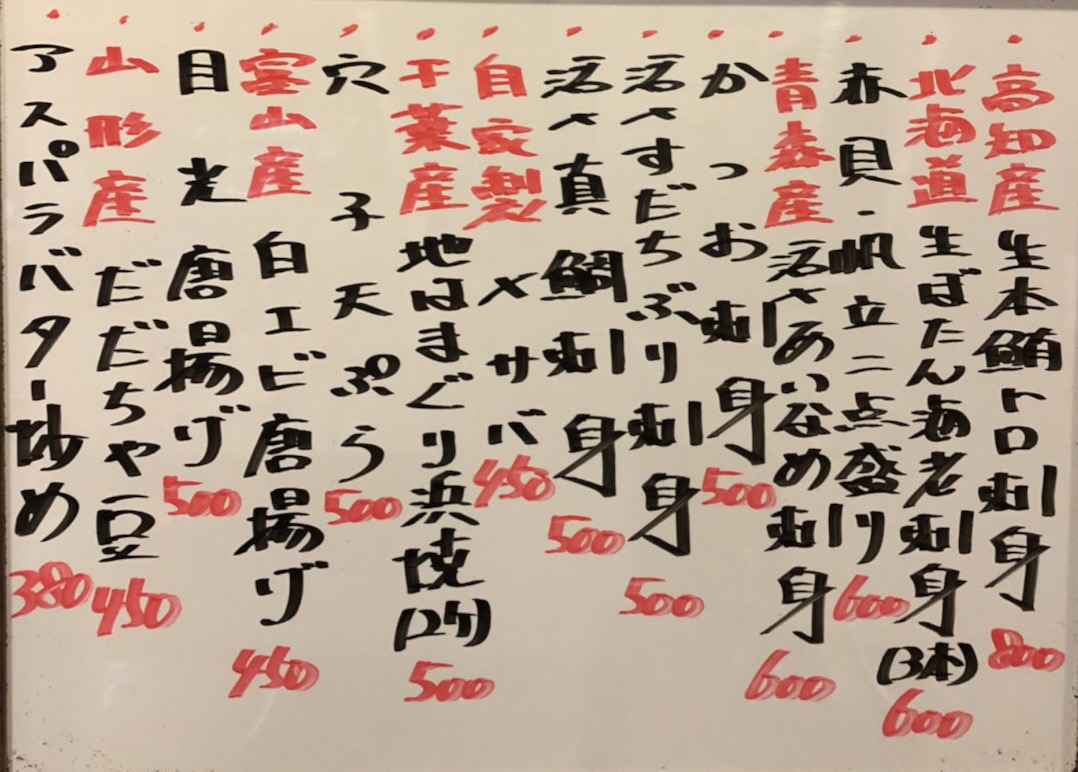 ・高知産 生本鮪トロ刺身 800
・北海道 生ぼたん海老刺身(3本) 600
・赤貝・帆立二点盛り 600
・青森産 活〆あいなめ刺身 600
・かつお刺身 500
・活〆すだちぶり刺身 500
・活〆真鯛刺身 500
・自家製 〆サバ 450
・千葉産 地はまぐり浜焼(2ケ) 500
・穴子天ぷら 500
・富山産 白エビ唐揚げ 450
・目光唐揚げ 500
・山形産 だだちゃ豆 450
・アスパラバター炒め 380